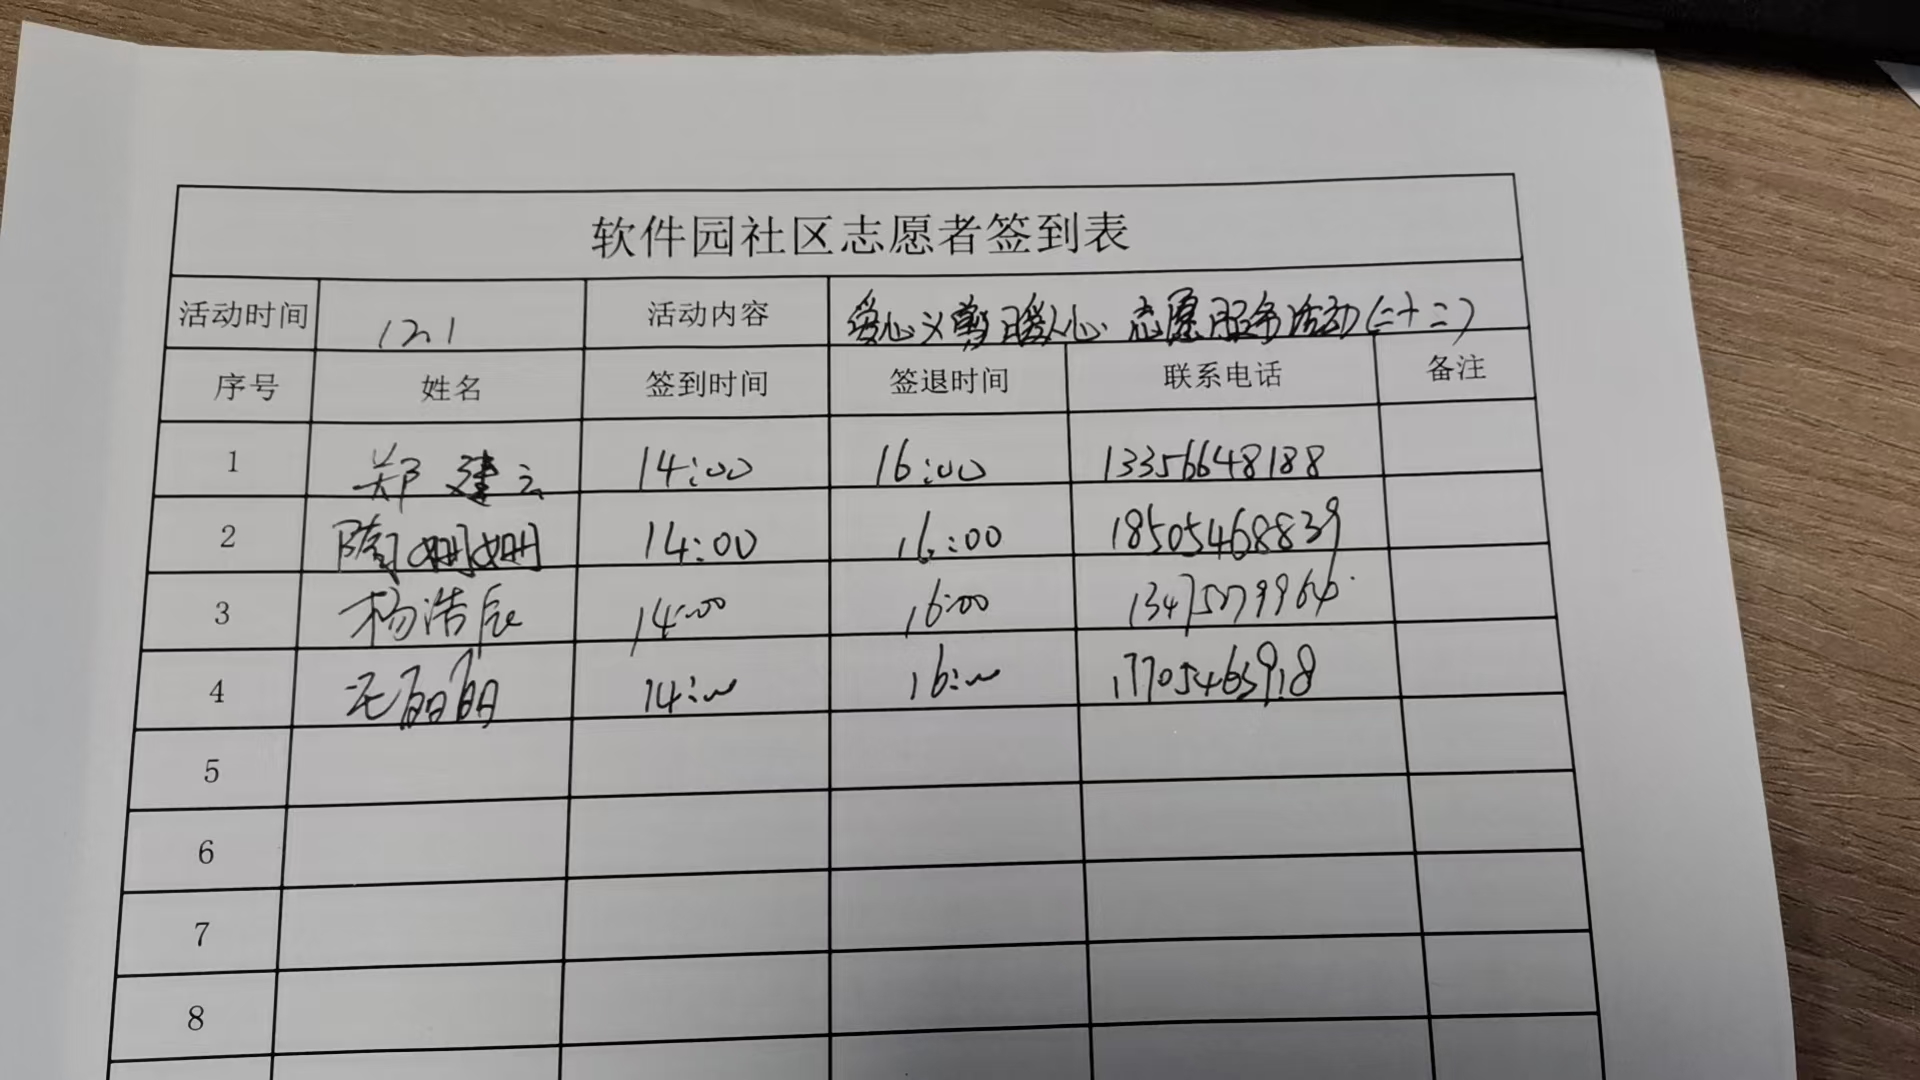 软件园社区志愿者签到表
活动时间 12.1 活动内容 爱心义剪暖人心 志愿服务活动(二十二)
序号 姓名 签到时间 签退时间 联系电话 备注
1 郑建云 14:00 16:00 13356648188
2 陶姗姗 14:00 16:00 18505468839
3 杨浩辰 14:00 16:00
4 14:00 16:00 17705463918
5
6
7
8